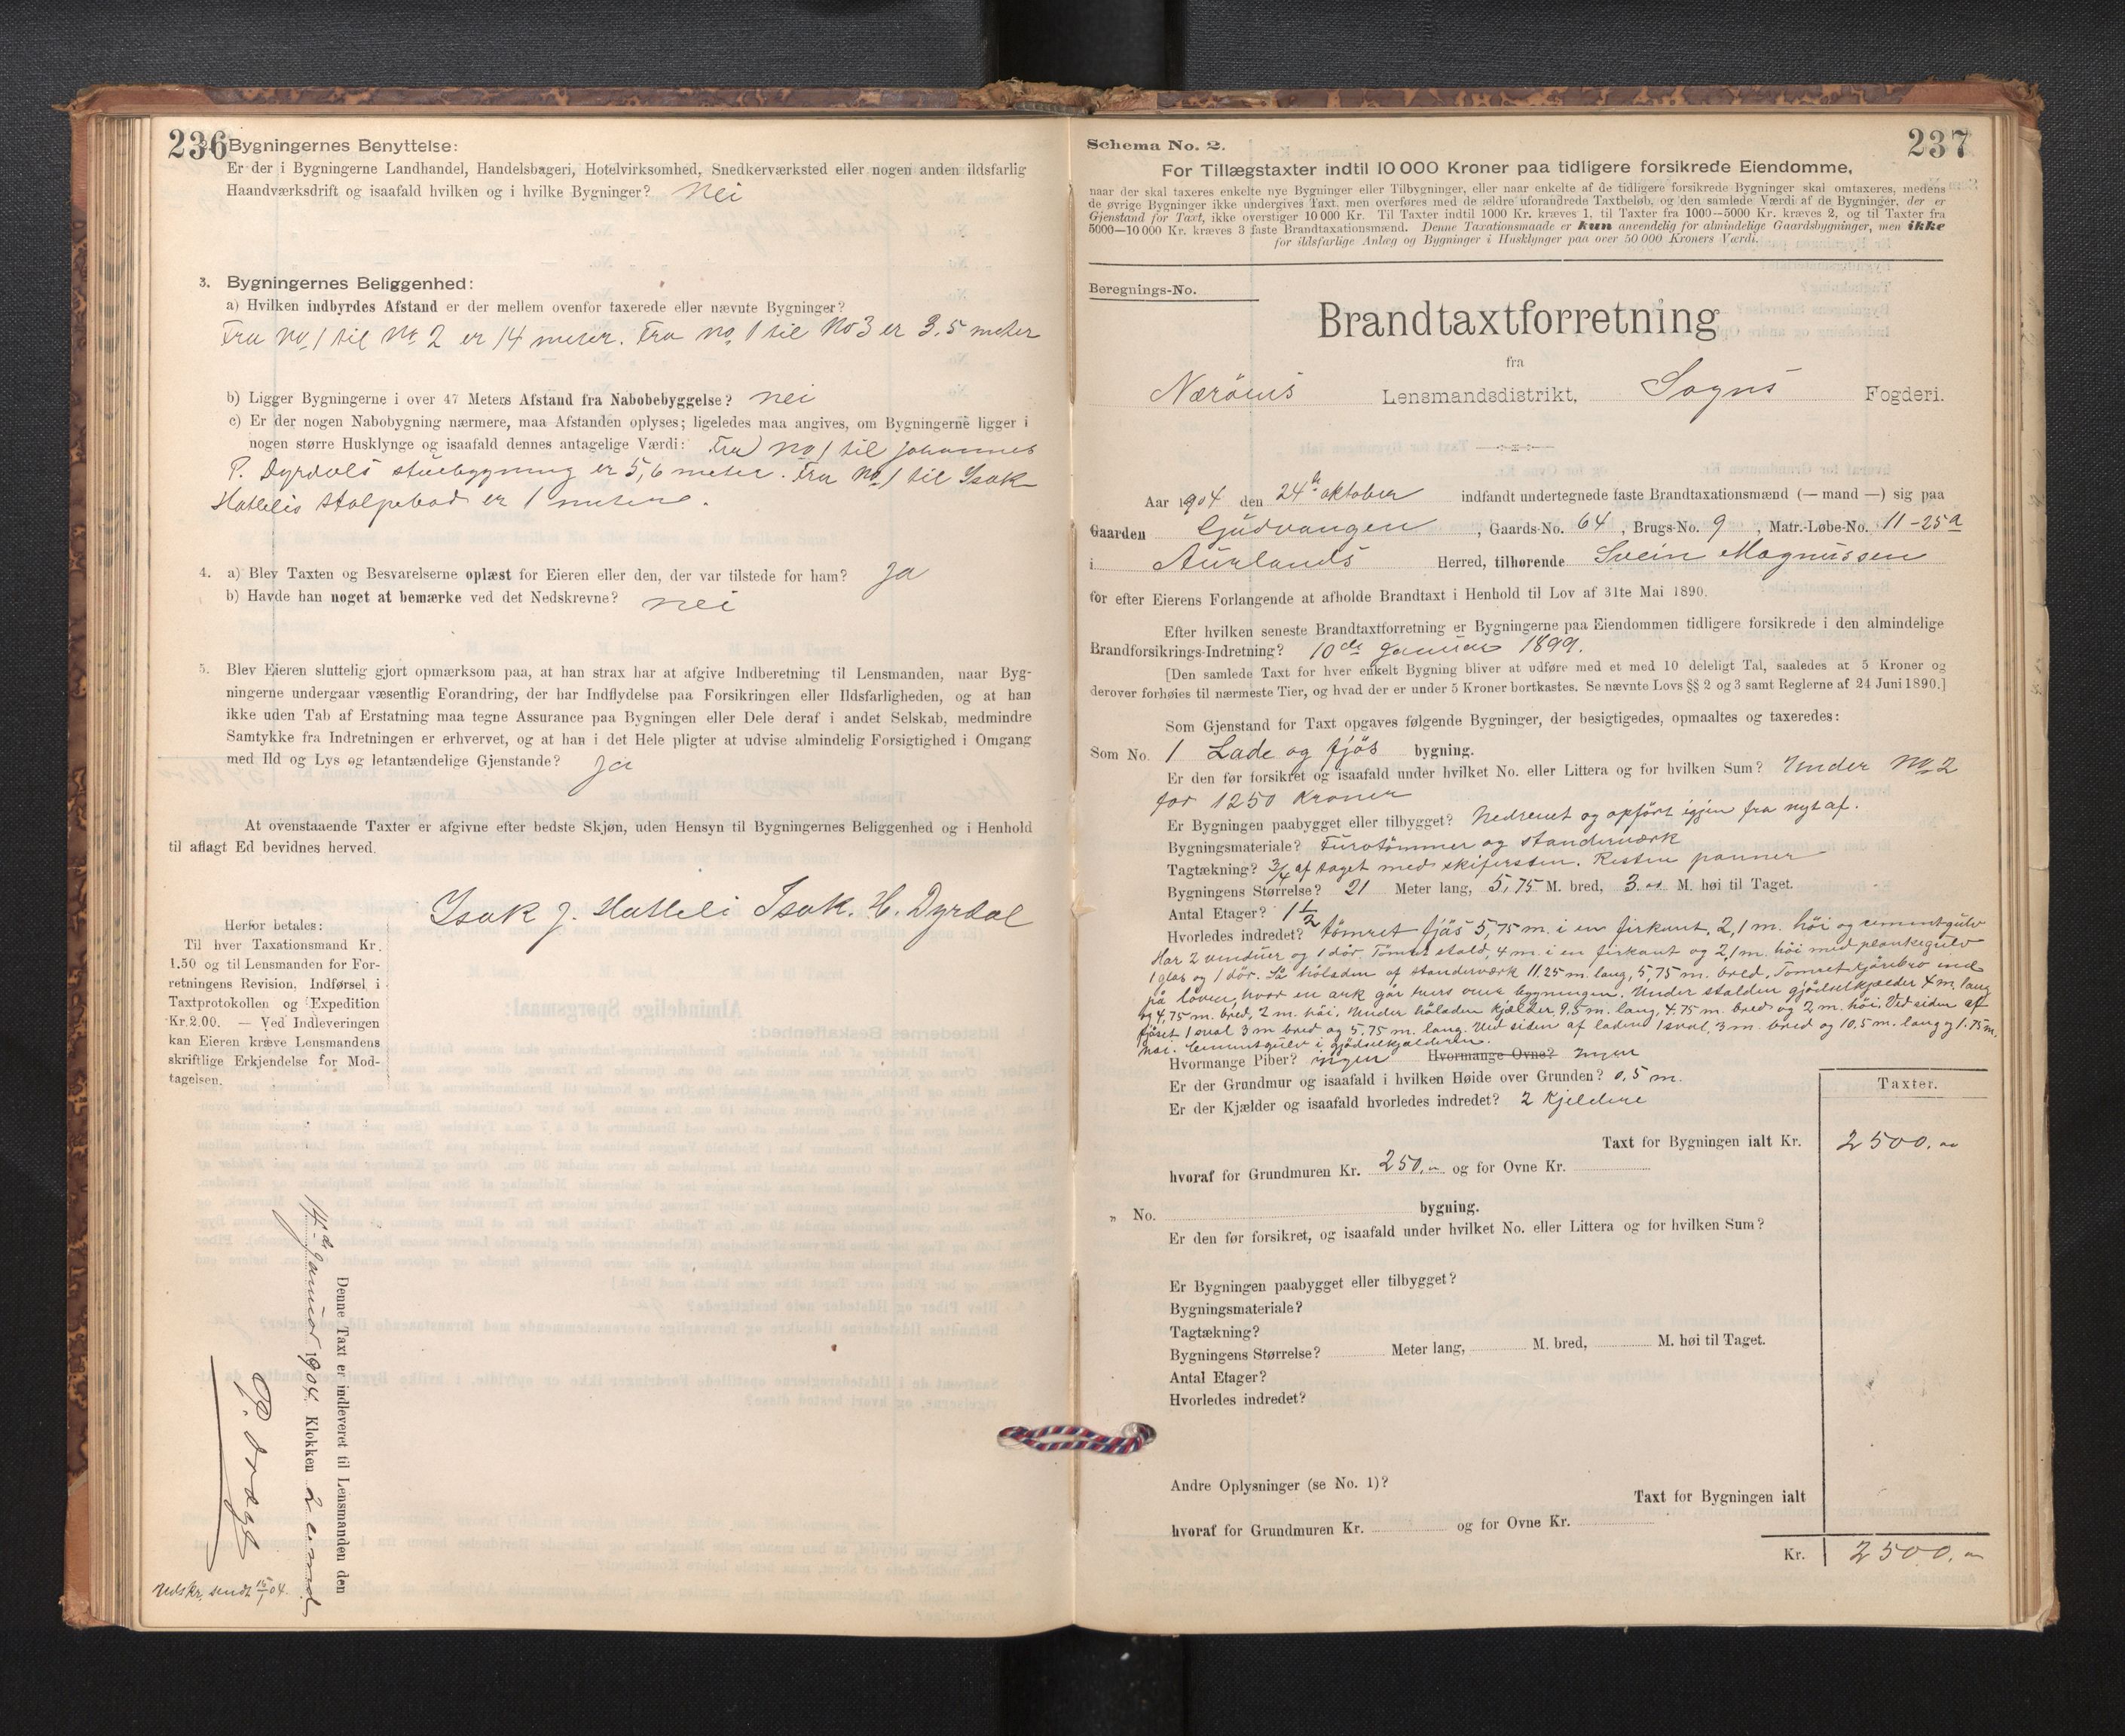 236
Bygningernes Benyttelse:
Er der i Bygningerne Landhandel, Handelsbageri, Hotelvirksomhed, Snedkerværksted eller nogen anden ildsfarlig
Haandværksdrift og isaafald hvilken og i hvilke Bygninger? Nei
3. Bygningernes Beliggenhed:
a) Hvilken indbyrdes Afstand er der mellem ovenfor taxerede eller nævnte Bygninger?
Fra No 1 til No 2 er 14 meter. Fra No 1 til No 3 er 3,5 meter
b) Ligger Bygningerne i over 47 Meters Afstand fra Nabobebyggelse? nei
c) Er der nogen Nabobygning nærmere, maa Afstanden oplyses; ligeledes maa angives, om Bygningerne ligger i
nogen større Husklynge og isaafald dennes antagelige Værdi: Fra No 1 til Johannes
P. Dyrdals stuebygning er 5,6 meter. Fra No 1 til Isak
Hatlelis stolpebod er 1 meter.
4. a) Blev Taxten og Besvarelserne oplæst for Eieren eller den, der var tilstede for ham? Ja
b) Havde han noget at bemærke ved det Nedskrevne? nei
5. Blev Eieren sluttelig gjort opmærksom paa, at han strax har at afgive Indberetning til Lensmanden, naar Byg-
ningerne undergaar væsentlig Forandring, der har Indflydelse paa Forsikringen eller Ildsfarligheden, og at han
ikke uden Tab af Erstatning maa tegne Assurance paa Bygningen eller Dele deraf i andet Selskab, medmindre
Samtykke fra Indretningen er erhvervet, og at han i det Hele pligter at udvise almindelig Forsigtighed i Omgang
med Ild og Lys og letantændelige Gjenstande? Ja
At ovenstaaende Taxter er afgivne efter bedste Skjøn, uden Hensyn til Bygningernes Beliggenhed og i Henhold
til aflagt Ed bevidnes herved.
Isak J. Hatleli Isak. H. Dyrdal
Herfor betales:
Til hver Taxationsmand Kr.
1.50 og til Lensmanden for For-
retningens Revision, Indførsel i
Taxtprotokollen og Expedition
Kr. 2.00. — Ved Indleveringen
kan Eieren kræve Lensmandens
skriftlige Erkjendelse for Mod-
tagelsen.
Denne Taxt er indleveret til Lensmanden den
14de Januar 1904. Klokken 2 em
Udskr. sendt 15/1 04.
237
Schema No. 2.
For Tillægstaxter indtil 10 000 Kroner paa tidligere forsikrede Eiendomme,
naar der skal taxeres enkelte nye Bygninger eller Tilbygninger, eller naar enkelte af de tidligere forsikrede Bygninger skal omtaxeres, medens
de øvrige Bygninger ikke undergives Taxt, men overføres med de ældre uforandrede Taxtbeløb, og den samlede Værdi af de Bygninger, der er
Gjenstand for Taxt, ikke overstiger 10 000 Kr. Til Taxter indtil 1000 Kr. kræves 1, til Taxter fra 1000—5000 Kr. kræves 2, og til Taxter fra
5000—10 000 Kr. kræves 3 faste Brandtaxationsmænd. Denne Taxationsmaade er kun anvendelig for almindelige Gaardsbygninger, men ikke
for ildsfarlige Anlæg og Bygninger i Husklynger paa over 50 000 Kroners Værdi.
Beregnings-No.
Brandtaxtforretning
fra
Nærøens Lensmandsdistrikt, Sogns Fogderi.
Aar 1904 den 24de oktober indfandt undertegnede faste Brandtaxationsmænd (— mand —) sig paa
Gaarden Gudvangen, Gaards-No. 64, Brugs-No. 9, Matr.-Løbe-No. 11-25a
i Aurlands Herred, tilhørende Svein Magnussen
for efter Eierens Forlangende at afholde Brandtaxt i Henhold til Lov af 31te Mai 1890.
Efter hvilken seneste Brandtaxtforretning er Bygningerne paa Eiendommen tidligere forsikrede i den almindelige
Brandforsikrings-Indretning? 10de Januar 1899.
[Den samlede Taxt for hver enkelt Bygning bliver at udføre med et med 10 deleligt Tal, saaledes at 5 Kroner og
derover forhøies til nærmeste Tier, og hvad der er under 5 Kroner bortkastes. Se nævnte Lovs §§ 2 og 3 samt Reglerne af 24 Juni 1890.]
Som Gjenstand for Taxt opgaves følgende Bygninger, der besigtigedes, opmaaltes og taxeredes:
Som No. 1 Lade og fjös bygning.
Er den før forsikret og isaafald under hvilket No. eller Littera og for hvilken Sum? Under No 2
for 1250 Kroner
Er Bygningen paabygget eller tilbygget? Nedrevet og opført igjen fra nyt af.
Bygningsmateriale? Furutömmer og standerværk
Tagtækning? 3/4 af taget med skifersten. Resten panner
Bygningens Størrelse? 21 Meter lang, 5,75 M. bred, 3.00 M. høi til Taget.
Antal Etager? 1 1/2
Hvorledes indredet? tömret fjös 5,75 m. i en firkant, 2,1 m. høi og cementgulv
Har 2 vinduer og 1 dör. Tömret stald, 4 m. i en firkant og 2,1 m. höi med plankegulv
1 glas og 1 dör. Så höladen af standerværk 11,25 m. lang, 5,75 m. bred, Tömret kjörebro ind
på löven, hvor en ark går tvers over bygningen. Under stalden gjödselkjælder 4 m. lang
og 4,75 m. bred, 2 m. höi. Under höladen kjælder 9,5 m. lang, 4,75 m. bred og 2 m. höi. Ved siden af
fjöset 1 sval 3 m bred og 5,75 m. lang. Ved siden af laden 1 sval, 3 m. bred og 10,5 m. lang og 1.75 m.
höi. Cementgulv i gjödselkjælderen.
Hvormange Piber? ingen Hvormange Ovne? ingen
Er der Grundmur og isaafald i hvilken Høide over Grunden? 0,5 m.
Er der Kjælder og isaafald hvorledes indredet? 2 Kjeldere
Taxter.
Taxt for Bygningen ialt Kr. 2500.00
hvoraf for Grundmuren Kr. 250.00 og for Ovne Kr.
„ No. bygning.
Er den før forsikret, og isaafald under hvilket No. eller Littera og for hvilken Sum?
Er Bygningen paabygget eller tilbygget?
Bygningsmateriale?
Tagtækning?
Bygningens Størrelse? Meter lang, M. bred, M. høi til Taget.
Antal Etager?
Hvorledes indredet?
Andre Oplysninger (se No. 1)?
Taxt for Bygningen ialt
hvoraf for Grundmuren Kr. og for Ovne Kr.
Kr. 2500.00